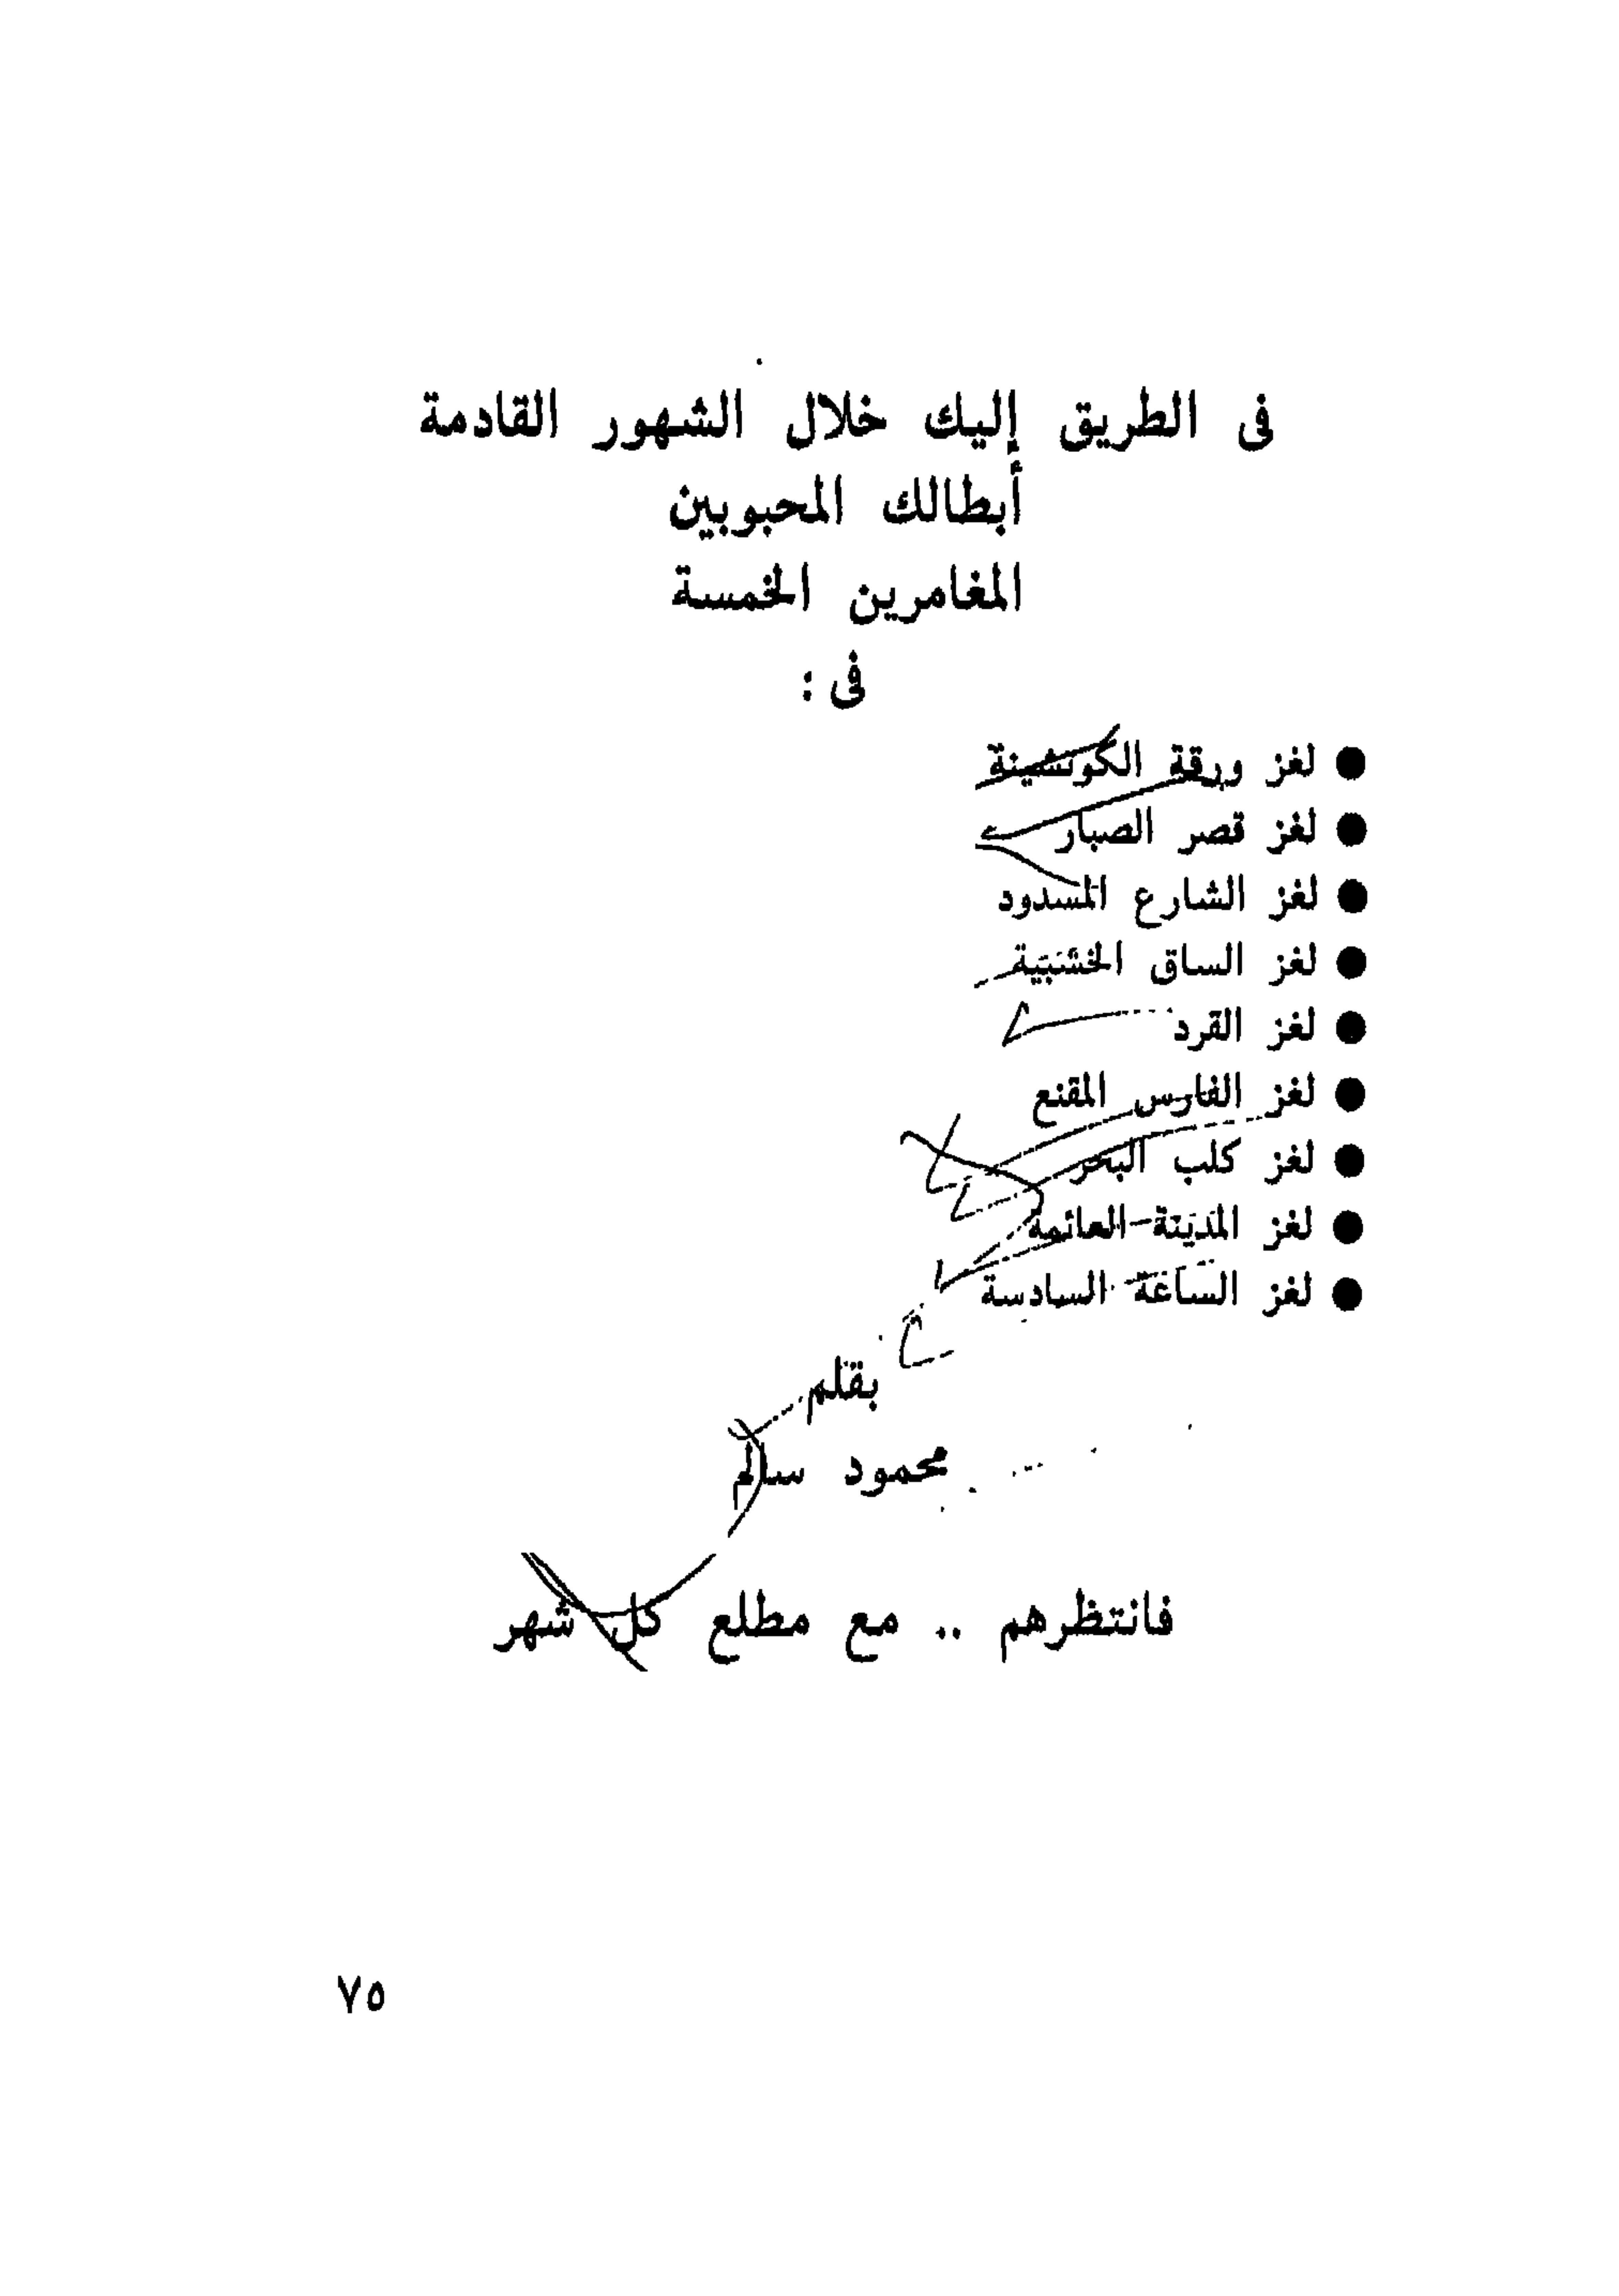 فى الطريق إليك خلال الشهور القادمة
أبطالك المحبوبين
المغامرين الخمسة
فى :
● لغز ورقة الكوتشينة
● لغز قصر الصبار
● لغز الشارع المسدود
● لغز الساق الخشبية
● لغز القرد
● لغز الفارس المقنع
● لغز كلب البحر
● لغز المدينة العائمة
● لغز الساعة السادسة
بقلم
محمود سالم
فانتظرهم .. مع مطلع كل شهر
٧٥